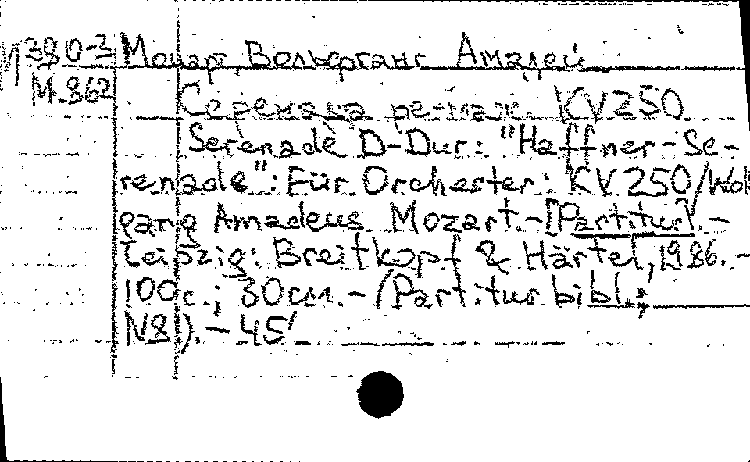 И380-3 Моцарт, Вольфганг Амадей
М-862
Серенада ре-маж. KV 250
Serenade D-Dur: "Haffner-Se-
renade": Für Orchester: KV 250/Wolf
gang Amadeus Mozart.-[Partitur].-
Leipzig: Breitkopf & Härtel, 1986.-
100с.; 30см.-(Partitur bibl.;
N8).-45'